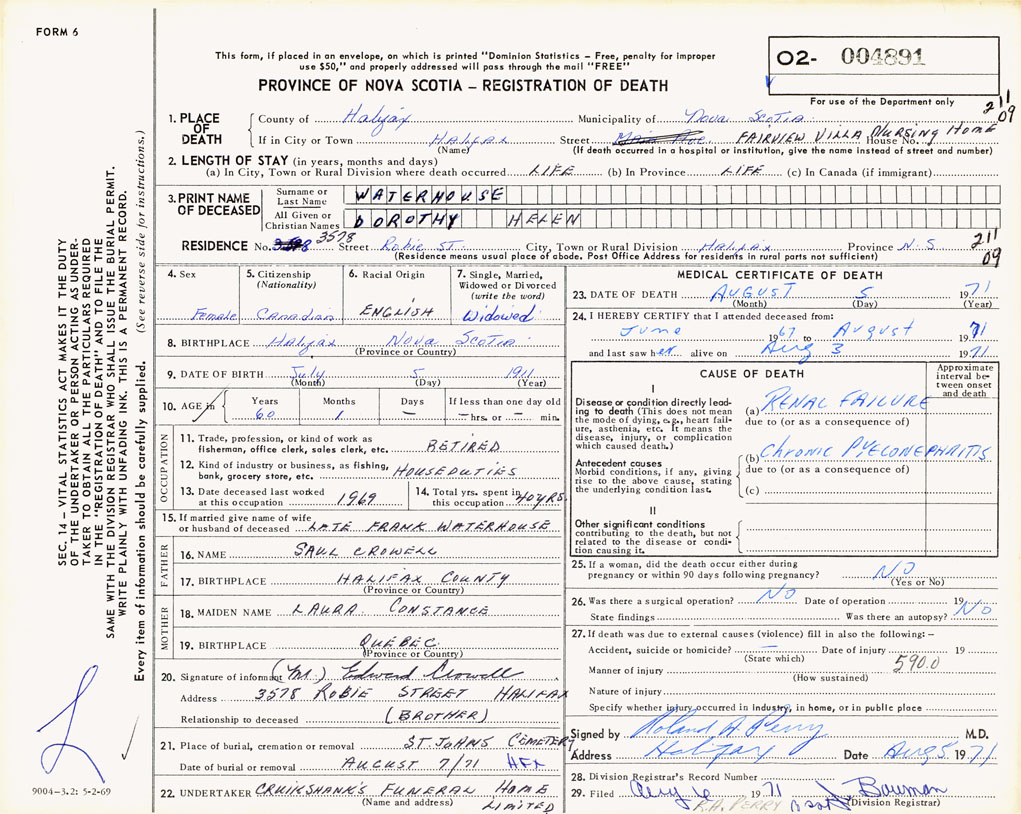 FORM 6
This form, if placed in an envelope, on which is printed "Dominion Statistics – Free, penalty for improper
use $50," and properly addressed will pass through the mail "FREE"
PROVINCE OF NOVA SCOTIA – REGISTRATION OF DEATH
02- 004891
For use of the Department only
211
09
1. PLACE OF DEATH County of Halifax Municipality of Nova Scotia
If in City or Town HALIFAX Street FAIRVIEW VILLA NURSING HOME House No.
(Name) (If death occurred in a hospital or institution, give the name instead of street and number)
2. LENGTH OF STAY (in years, months and days)
(a) In City, Town or Rural Division where death occurred LIFE (b) In Province LIFE (c) In Canada (if immigrant)
3. PRINT NAME OF DECEASED Surname or Last Name WATERHOUSE
All Given or Christian Names DOROTHY HELEN
RESIDENCE No. 3578 Street Robie ST. City, Town or Rural Division HALIFAX Province N.S
(Residence means usual place of abode. Post Office Address for residents in rural parts not sufficient)
211
09
4. Sex Female
5. Citizenship (Nationality) Canadian
6. Racial Origin ENGLISH
7. Single, Married, Widowed or Divorced (write the word) Widowed
8. BIRTHPLACE Halifax, Nova Scotia
(Province or Country)
9. DATE OF BIRTH July 5 1911
(Month) (Day) (Year)
10. AGE in Years 60 Months 1 Days – If less than one day old – hrs. or – min.
OCCUPATION
11. Trade, profession, or kind of work as fisherman, office clerk, sales clerk, etc. RETIRED
12. Kind of industry or business, as fishing, bank, grocery store, etc. HOUSEDUTIES
13. Date deceased last worked at this occupation 1969
14. Total yrs. spent in this occupation 40 YRS.
15. If married give name of wife or husband of deceased LATE FRANK WATERHOUSE
FATHER
16. NAME SAUL CROWELL
17. BIRTHPLACE HALIFAX COUNTY
(Province or Country)
MOTHER
18. MAIDEN NAME LAURA CONSTANCE
19. BIRTHPLACE QUEBEC
(Province or Country)
20. Signature of informant (Mr.) Edward Crowell
Address 3578 ROBIE STREET HALIFAX
Relationship to deceased (BROTHER)
21. Place of burial, cremation or removal ST. JOHNS CEMETERY
Date of burial or removal AUGUST 7/71 HFX
22. UNDERTAKER CRUIKSHANK'S FUNERAL HOME LIMITED
(Name and address)
MEDICAL CERTIFICATE OF DEATH
23. DATE OF DEATH AUGUST 5 1971
(Month) (Day) (Year)
24. I HEREBY CERTIFY that I attended deceased from:
June 1967 to August 1971
and last saw her alive on Aug 3 1971
CAUSE OF DEATH
Approximate interval between onset and death
I
Disease or condition directly leading to death (This does not mean the mode of dying, e.g., heart failure, asthenia, etc. It means the disease, injury, or complication which caused death.)
(a) RENAL FAILURE
due to (or as a consequence of)
Antecedent causes
Morbid conditions, if any, giving rise to the above cause, stating the underlying condition last.
(b) Chronic PYELONEPHRITIS
due to (or as a consequence of)
(c)
II
Other significant conditions
contributing to the death, but not related to the disease or condition causing it.
25. If a woman, did the death occur either during pregnancy or within 90 days following pregnancy? NO
(Yes or No)
26. Was there a surgical operation? NO Date of operation 19
State findings Was there an autopsy? NO
27. If death was due to external causes (violence) fill in also the following:–
Accident, suicide or homicide? – Date of injury 19
(State which)
590.0
Manner of injury
(How sustained)
Nature of injury
Specify whether injury occurred in industry, in home, or in public place
Signed by Roland A. Perry M.D.
Address Halifax Date Aug 5 1971
28. Division Registrar's Record Number
29. Filed Aug 6 1971 Bauman
R.A. PERRY (Division Registrar)
SEC. 14 – VITAL STATISTICS ACT MAKES IT THE DUTY
OF THE UNDERTAKER OR PERSON ACTING AS UNDER-
TAKER TO OBTAIN ALL THE PARTICULARS REQUIRED
IN THE "REGISTRATION OF DEATH" AND TO FILE THE
SAME WITH THE DIVISION REGISTRAR WHO SHALL ISSUE THE BURIAL PERMIT.
WRITE PLAINLY WITH UNFADING INK. THIS IS A PERMANENT RECORD.
Every item of information should be carefully supplied. (See reverse side for instructions.)
9004–3.2: 5-2-69